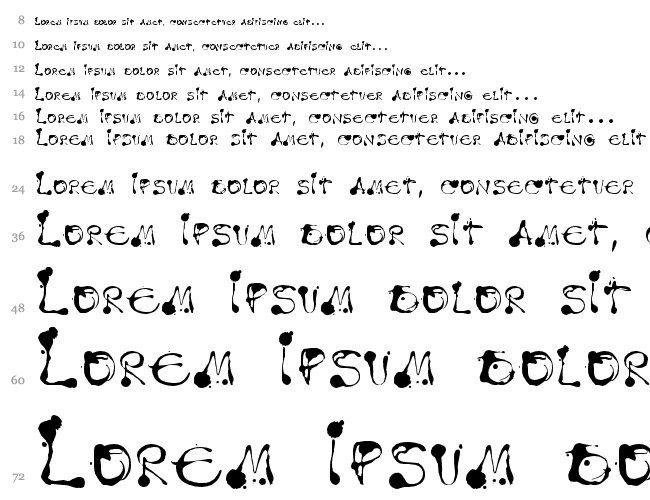 8 Lorem ipsum dolor sit amet, consectetuer adipiscing elit...
10 Lorem ipsum dolor sit amet, consectetuer adipiscing elit...
12 Lorem ipsum dolor sit amet, consectetuer adipiscing elit...
14 Lorem ipsum dolor sit amet, consectetuer adipiscing elit...
16 Lorem ipsum dolor sit amet, consectetuer adipiscing elit...
18 Lorem ipsum dolor sit amet, consectetuer adipiscing elit
24 Lorem ipsum dolor sit amet, consectetuer
36 Lorem ipsum dolor sit amet,
48 Lorem ipsum dolor sit
60 Lorem ipsum dolor
72 Lorem ipsum do